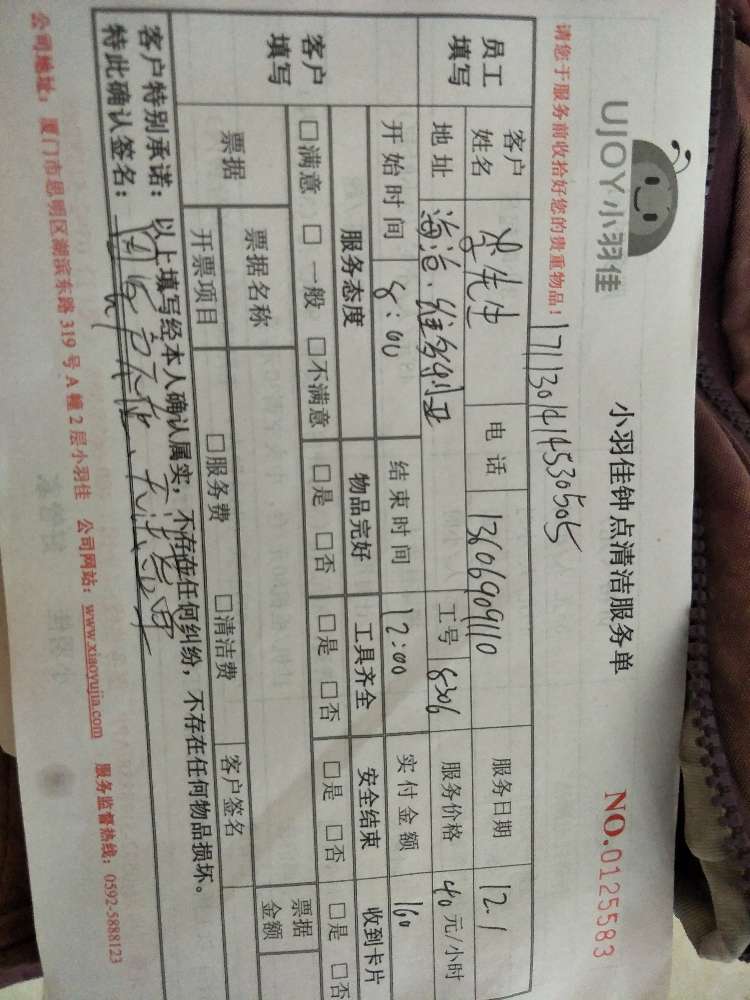 UJOY小羽佳
小羽佳钟点清洁服务单
NO.0125583
请您于服务前收拾好您的贵重物品!
1711301414530505
员工填写 客户姓名 先生 电话 13606909110 服务日期 12.1
地址 海沧 工号 8306 服务价格 40元/小时
开始时间 8:00 结束时间 12:00 实付金额 160
客户填写 服务态度 物品完好 工具齐全 安全结束 收到卡片
□满意 □一般 □不满意 □是 □否 □是 □否 □是 □否 □是 □否
票据 票据名称 客户签名 票据金额
开票项目 □服务费 □清洁费
客户特别承诺:以上填写经本人确认属实,不存在任何纠纷,不存在任何物品损坏。
特此确认签名:
公司地址:厦门市思明区湖滨东路319号A幢2层小羽佳 公司网站:www.xiaoyujia.com 服务监督热线:0592-5888123